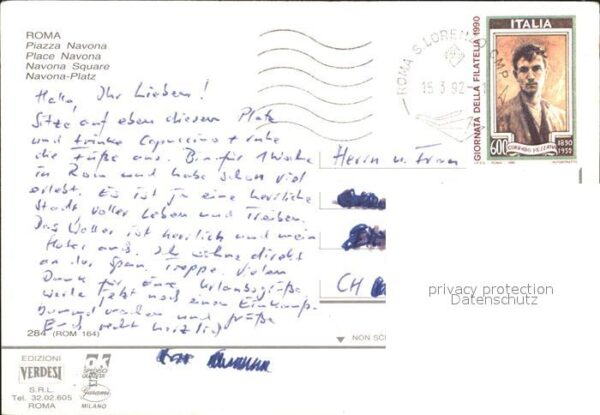 ROMA
Piazza Navona
Place Navona
Navona Square
Navona-Platz
Hallo, Ihr Lieben!
Sitze auf eben diesem Platz
und trinke Capuccino + ruhe
die Füße aus. Bin für 1 Woche
in Rom und habe schon viel
erlebt. Es ist ja eine herrliche
Stadt, voller Leben und Treiben.
Das Wetter ist herrlich und mein
Hotel auch. Ich wohne direkt
an der Span. Treppe. Vielen
Dank für eure Urlaubsgrüße.
Werde jetzt noch einen Einkaufs-
bummel machen und grüße
Euch recht herzlich
284 (ROM 164)
EDIZIONI
VERDESI
S.R.L.
Tel. 32.02.605
ROMA
Garami
MILANO
NON SC
Herrn u. Frau
CH
ROMA S. LORENZO CMP
15 3 92
GIORNATA DELLA FILATELIA 1990
ITALIA
600
CORRADO MEZZANA
1890
1952
privacy protection
Datenschutz